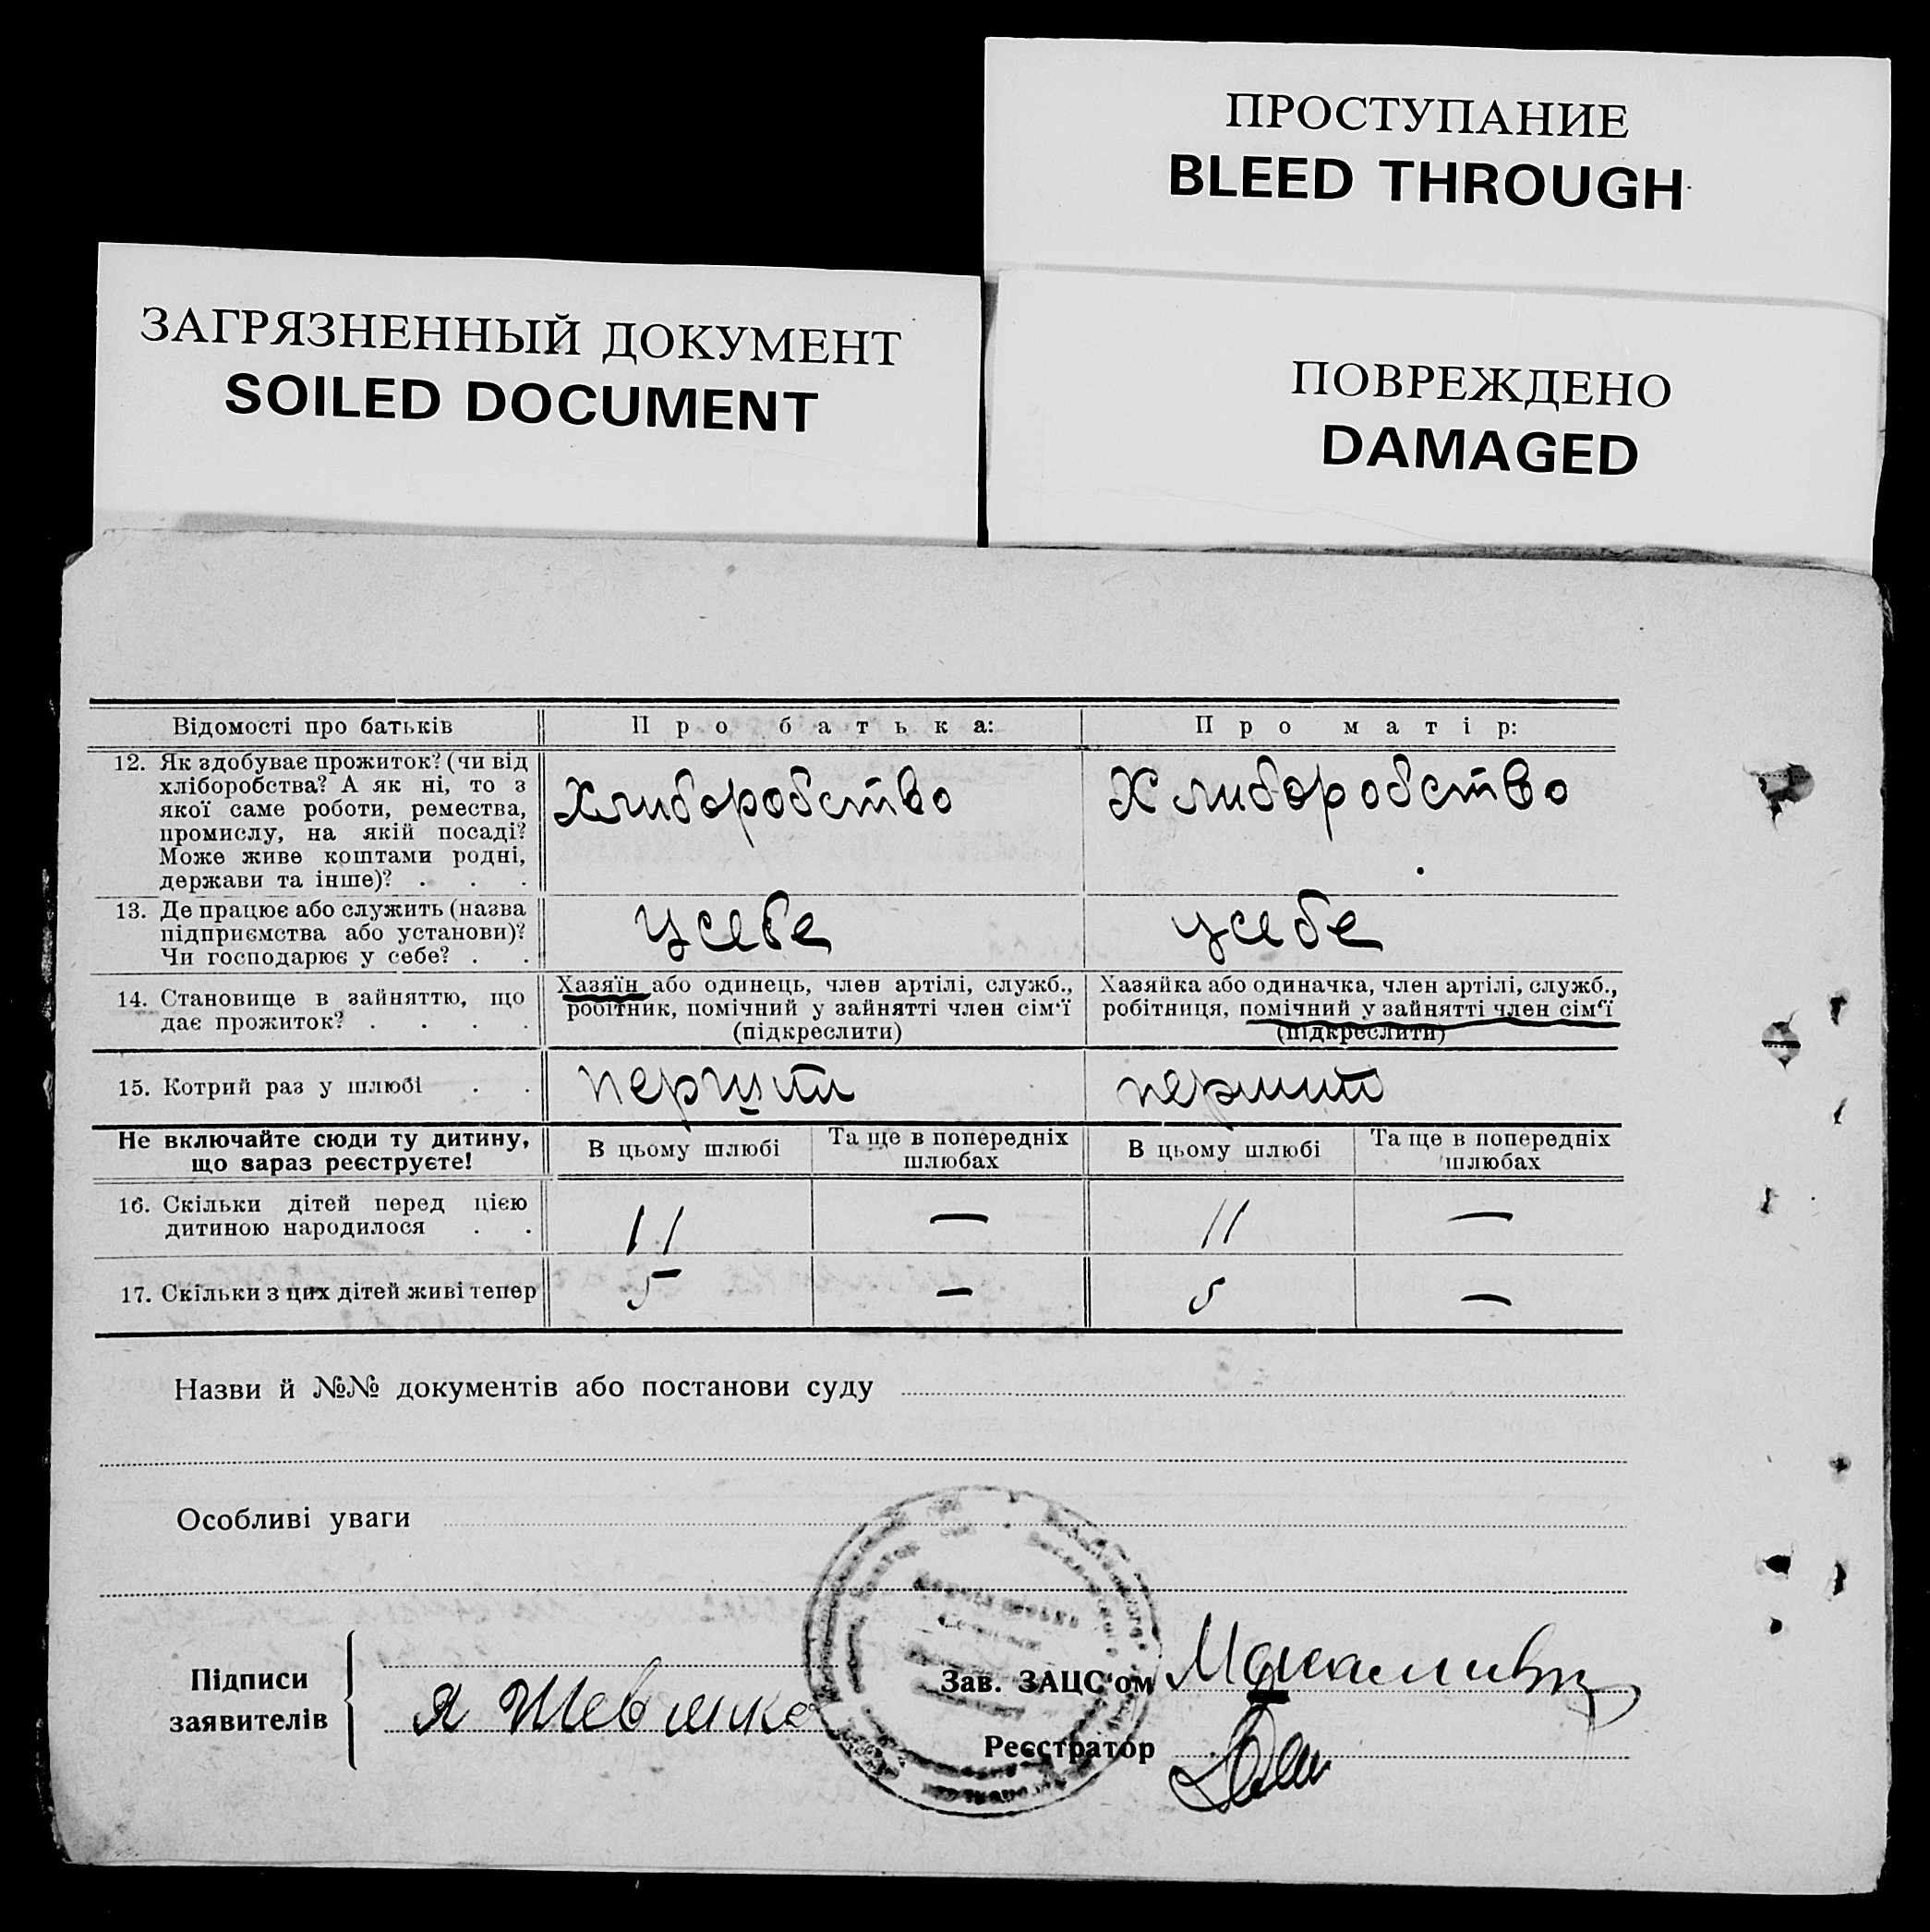 ПРОСТУПАНИЕ
BLEED THROUGH
ЗАГРЯЗНЕННЫЙ ДОКУМЕНТ
SOILED DOCUMENT
ПОВРЕЖДЕНО
DAMAGED
Відомості про батьків
Про батька:
Про матір:
12. Як здобуває прожиток? (чи від
хліборобства? А як ні, то з
якої саме роботи, ремества,
промислу, на якій посаді?
Може живе коштами родні,
держави та інше)? . . .
Хлиборобство
Хлиборобство
13. Де працює або служить (назва
підприємства або установи)?
Чи господарює у себе? . .
усебе
усебе
14. Становище в зайняттю, що
дає прожиток? . . . .
Хазяїн або одинець, член артілі, служб.,
робітник, помічний у зайнятті член сім'ї
(підкреслити)
Хазяйка або одиначка, член артілі, служб.,
робітниця, помічний у зайнятті член сім'ї
(підкреслити)
15. Котрий раз у шлюбі . .
перший
перший
Не включайте сюди ту дитину,
що зараз реєструєте!
В цьому шлюбі
Та ще в попередніх
шлюбах
В цьому шлюбі
Та ще в попередніх
шлюбах
16. Скільки дітей перед цією
дитиною народилося . .
11
—
11
—
17. Скільки з цих дітей живі тепер
5
—
5
—
Назви й №№ документів або постанови суду
Особливі уваги
Підписи
заявителів
Зав. ЗАЦС'ом
Реєстратор